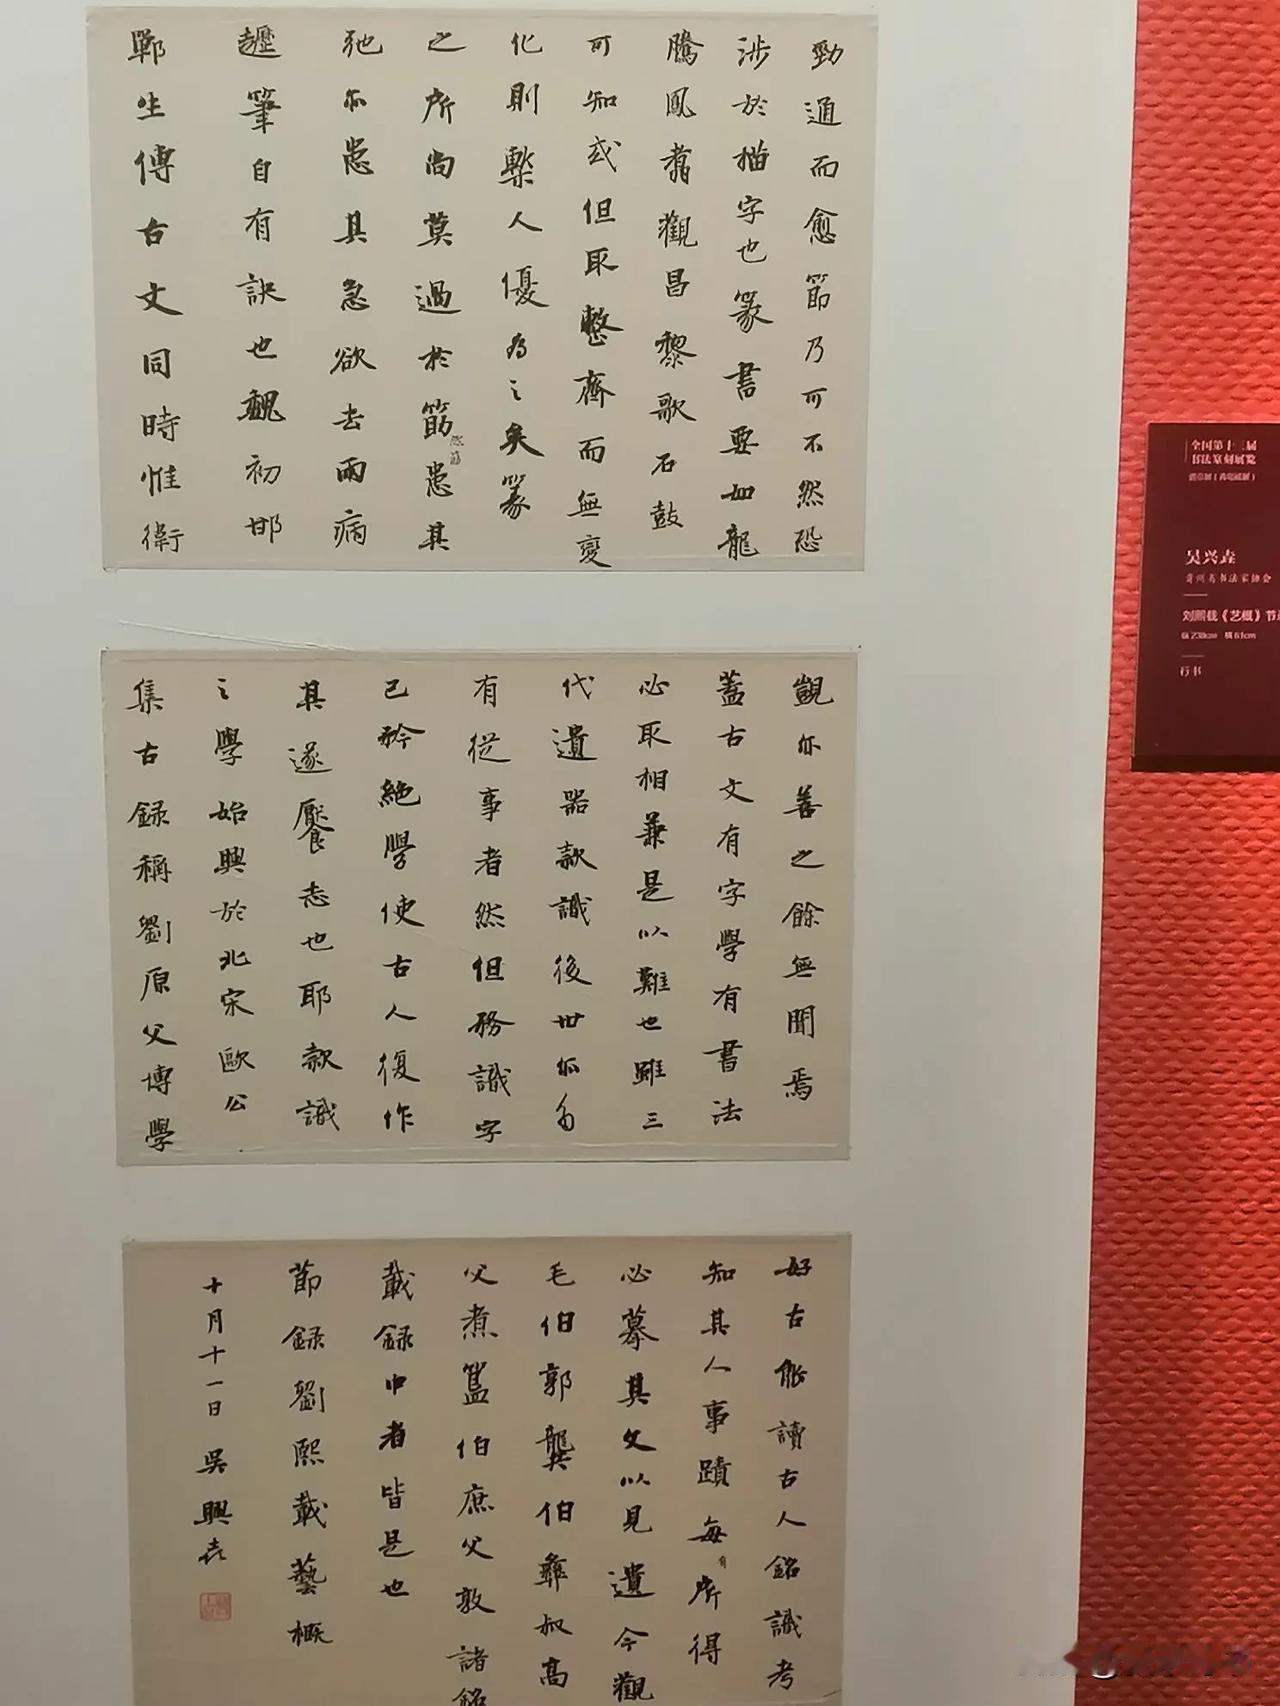 勁通而愈節乃可不然恐
涉於描字也篆書要如龍
騰鳳翥觀昌黎歌石鼓
可知或但取整齊而無變
化則槧人優為之矣篆
之所尚莫過於筋
然筋
患其
弛亦患其急欲去兩病
趯筆自有訣也魏初邯
鄲生傳古文同時惟衛
覬亦善之餘無聞焉
蓋古文有字學有書法
必取相兼是以難也雖三
代遺器款識後世亦多
有從事者然但務識字
已矜絕學使古人復作
其遂饜志也耶款識
之學始興於北宋歐公
集古錄稱劉原父博學
好古能讀古人銘識考
知其人事蹟每
有
所得
必摹其文以見遺今觀
毛伯郭龔伯彝叔高
父煮簋伯庶父敦諸銘
載錄中者皆是也
節錄劉熙載藝概
十月十一日吳興垚
全国第十三届
书法篆刻展览
吴兴垚
贵州省书法家协会
刘熙载《艺概》节
横61cm
行书